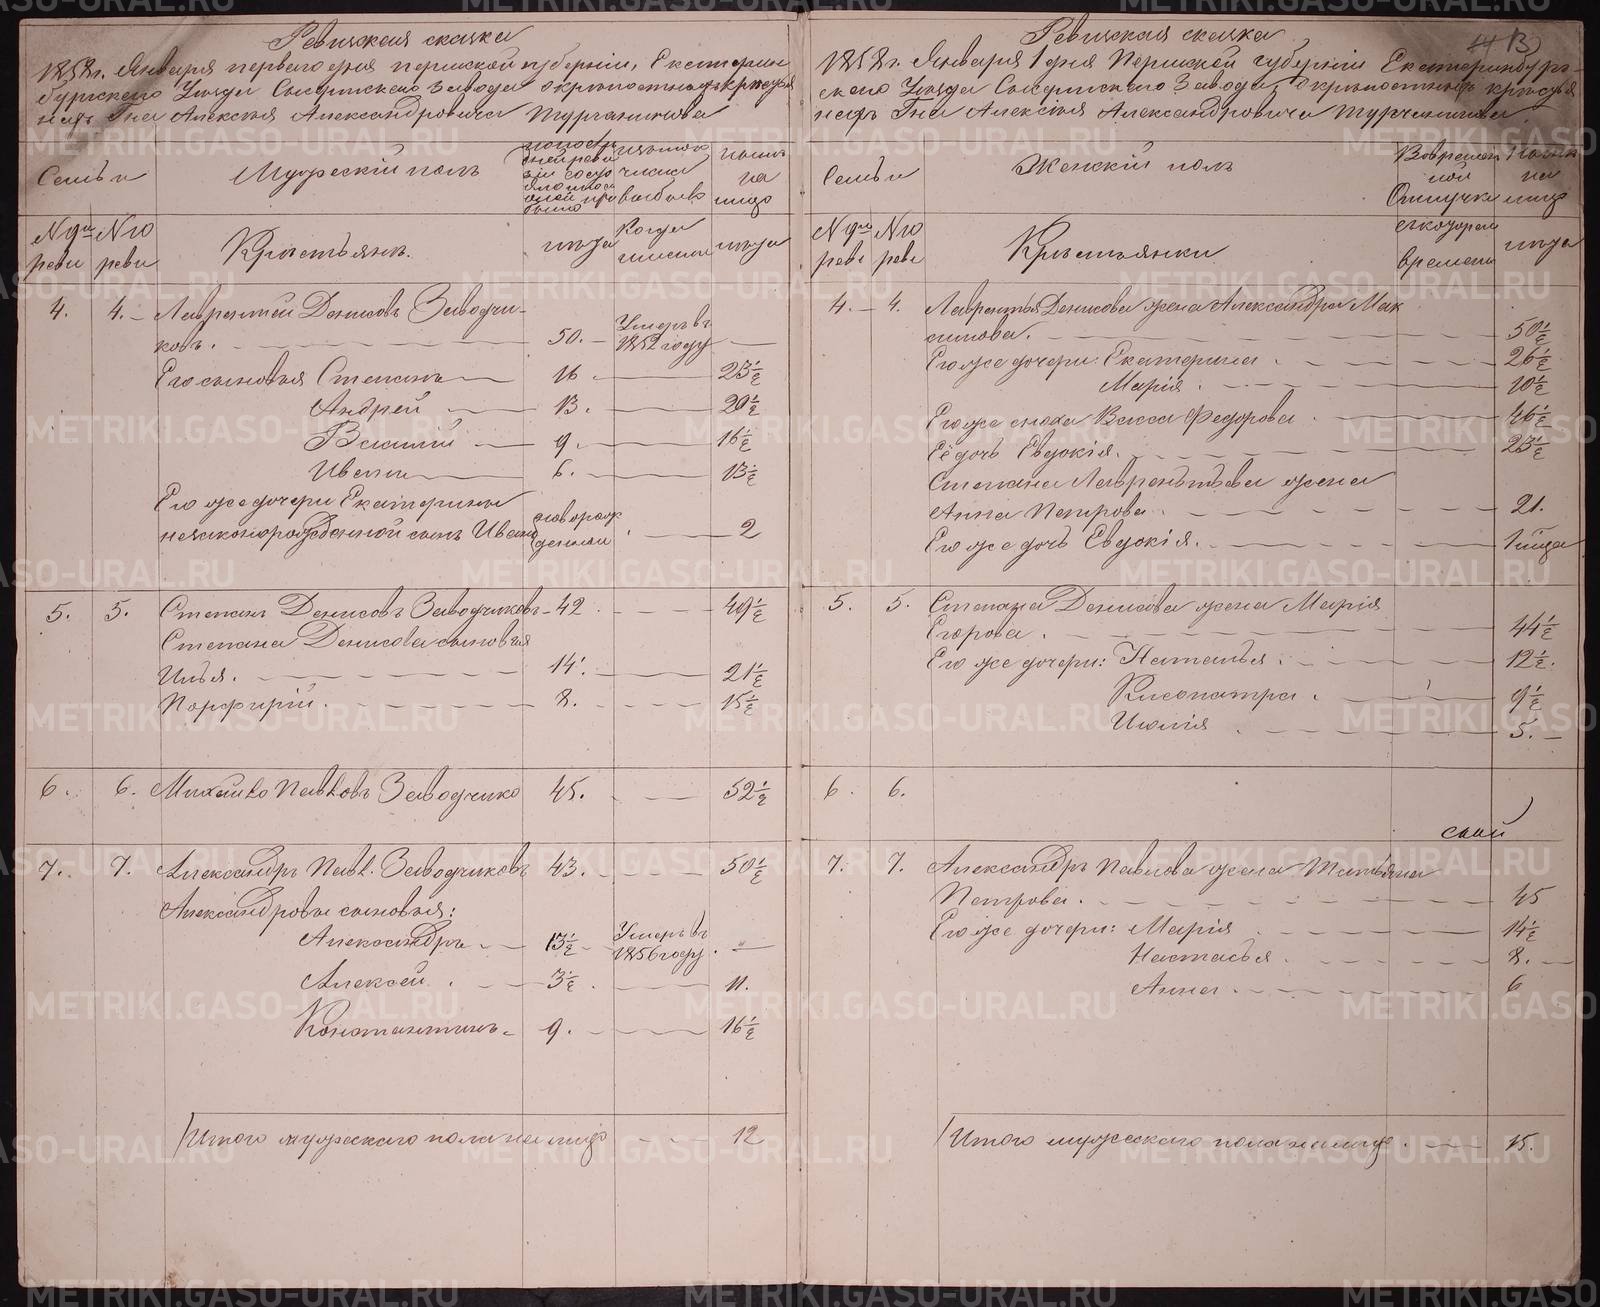 Ревижская скаска
1858 г. Января первого дня пермской губернiи, Екатерин
бургского Уезда Сысертского Завода о крепостныхъ крестья
нахъ Гна Алексея Александровича Турчанинова
Семьи
Мужескiй полъ
Крестьянъ.
лета
Когда
лета
4. 4. Лаврентей Денисовъ Заводчи-
ковъ. 50. Умеръ въ 1852 году —
Его сыновья Степанъ 16. 23 1/2
Андрей 13. 20 1/2
Василiй 9. 16 1/2
Иванъ 6. 13 1/2
Его же дочери Екатерины
незаконорожденной сынъ Иванъ 2
5. 5. Степанъ Денисовъ Заводчиковъ 42 49 1/2
Степана Денисова сыновья
Илья. 14. 21 1/2
Порфирiй. 8. 15 1/2
6. 6. Михайло Павловъ Заводчико 45. 52 1/2
7. 7. Александръ Павл. Заводчиковъ 43. 50 1/2
Александровы сыновья:
Александръ 13 1/2 Умеръ въ 1856 году. —
Алексей 3 1/2. 11.
Константинъ 9. 16 1/2
Итого мужеского пола на лицо 12
13
Ревижская скаска
1858 г. Января 1 дня Пермской губернiи Екатеринбург-
ского Уезда Сысертского Завода, о крепостныхъ крестья
нахъ Гна Алексея Александровича Турчанинова.
Семьи
Женскiй полъ
Крестьянки
времени
лета
4. 4. Лаврентья Денисова жена Александра Мак
симова. 50 1/2
Его же дочери: Екатерина 26 1/2
Марiя. 10 1/2
Его же сноха Васса Федорова 46 1/2
Её дочь Евдокiя. 23 1/2
Степана Лаврентьева жена
Анна Петрова. 21.
Его же дочь Евдокiя.
5. 5. Степана Денисова жена Марiя
Егорова. 44 1/2
Его же дочери: Наталья. 12 1/2.
Клеопатра. 9 1/2
Июлiя 5.
6. 6.
7. 7. Александръ Павлова жена Татьяна
Петрова. 45
Его же дочери: Марiя 14 1/2
Настасья 8.
Анна 6
Итого мужеского пола на лице. 15.
METRIKI.GASO-URAL.RU